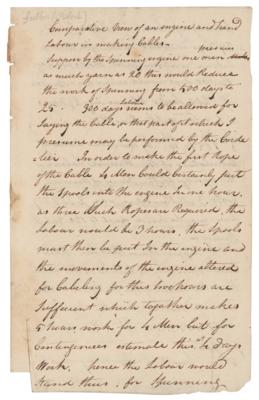 Comparative View of an engine and hand
Labour in making Cables
presume
Suppose by the Spinning engine one man
as much yarn as 20 this would Reduce
the work of Spinning from 500 days to
25 . 300 days seems to be allowed for
Laying the Cable, or that part of which I
presume may be performed by the Corde
lier . In order to make the first Rope
of the Cable 4 Men Could Certainly put
the Spools into the engine in one hour,
as three Such Ropes are Required, the
Labour would be 3 hours, the Spools
must then be put in the engine and
the movements of the engine altered
for Cabeling for this two hours are
Sufficient which together makes
5 hours work for 4 Men but for
Contingences estimate this 4 days
Work. hence the Labour would
Stand thus, for Spinning